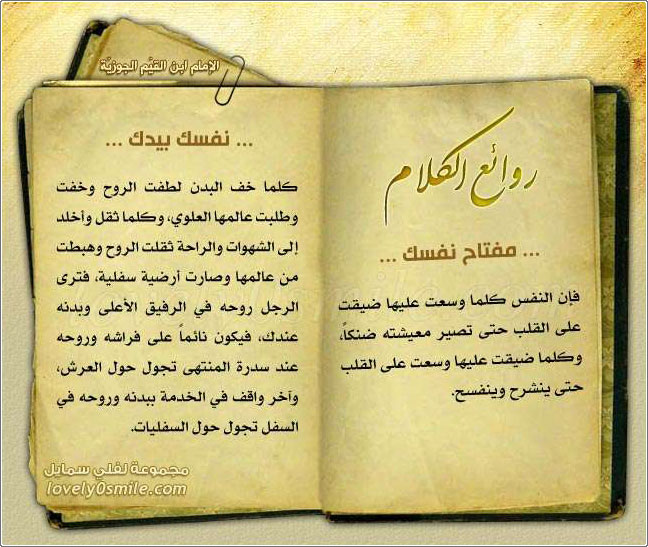 الإمام ابن القيّم الجوزيّة
روائع الكلام
... مفتاح نفسك ...
فإن النفس كلما وسعت عليها ضيقت
على القلب حتى تصير معيشته ضنكاً،
وكلما ضيقت عليها وسعت على القلب
حتى ينشرح وينفسح.
... نفسك بيدك ...
كلما خف البدن لطفت الروح وخفت
وطلبت عالمها العلوي، وكلما ثقل وأخلد
إلى الشهوات والراحة ثقلت الروح وهبطت
من عالمها وصارت أرضية سفلية، فترى
الرجل روحه في الرفيق الأعلى وبدنه
عندك، فيكون نائماً على فراشه وروحه
عند سدرة المنتهى تجول حول العرش،
وآخر واقف في الخدمة ببدنه وروحه في
السفل تجول حول السفليات.
مجموعة لفلي سمايل
lovely0smile.com